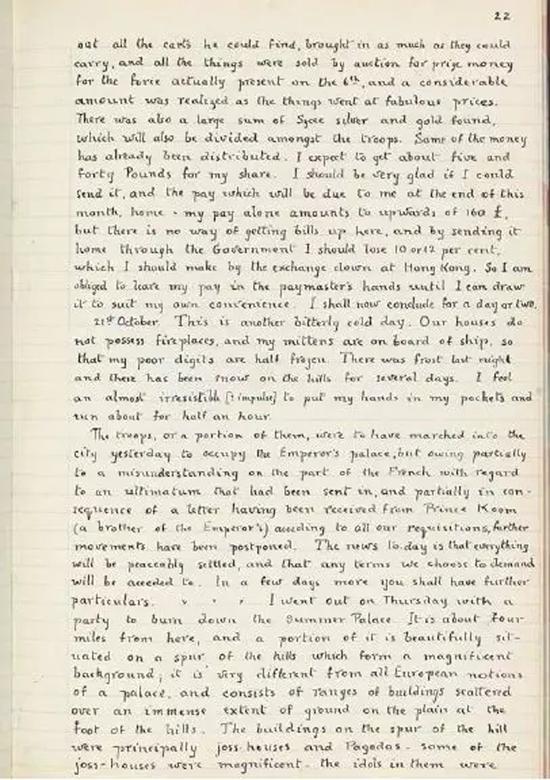 22
out all the carts he could find, brought in as much as they could
carry, and all the things were sold by auction for prize money
for the force actually present on the 6th, and a considerable
amount was realized as the things went at fabulous prices.
There was also a large sum of Sycee silver and gold found,
which will also be divided amongst the troops. Some of the money
has already been distributed. I expect to get about five and
forty Pounds for my share. I should be very glad if I could
send it, and the pay which will be due to me at the end of this
month, home - my pay alone amounts to upwards of 160 £,
but there is no way of getting bills up here, and by sending it
home through the Government I should lose 10 or 12 per cent,
which I should make by the exchange down at Hong Kong. So I am
obliged to leave my pay in the paymaster's hands until I can draw
it to suit my own convenience. I shall now conclude for a day or two.
21st October. This is another bitterly cold day. Our houses do
not possess fireplaces, and my mittens are on board of ship, so
that my poor digits are half frozen. There was frost last night
and there has been snow on the hills for several days. I feel
an almost irresistible [? impulse] to put my hands in my pockets and
run about for half an hour.
The troops, or a portion of them, were to have marched into the
city yesterday to occupy the Emperor's palace, but owing partially
to a misunderstanding on the part of the French with regard
to an ultimatum that had been sent in, and partially in con-
sequence of a letter having been received from Prince Koom
(a brother of the Emperor's) acceding to all our requisitions, further
movements have been postponed. The news to-day is that everything
will be peaceably settled, and that any terms we choose to demand
will be acceded to. In a few days more you shall have further
particulars. " " " I went out on Thursday with a
party to burn down the Summer Palace. It is about four
miles from here, and a portion of it is beautifully sit-
uated on a spur of the hills which form a magnificent
background; it is very different from all European notions
of a palace, and consists of ranges of buildings scattered
over an immense extent of ground on the plain at the
foot of the hills. The buildings on the spur of the hill
were principally joss-houses and Pagodas - some of the
joss-houses were magnificent - the idols in them were